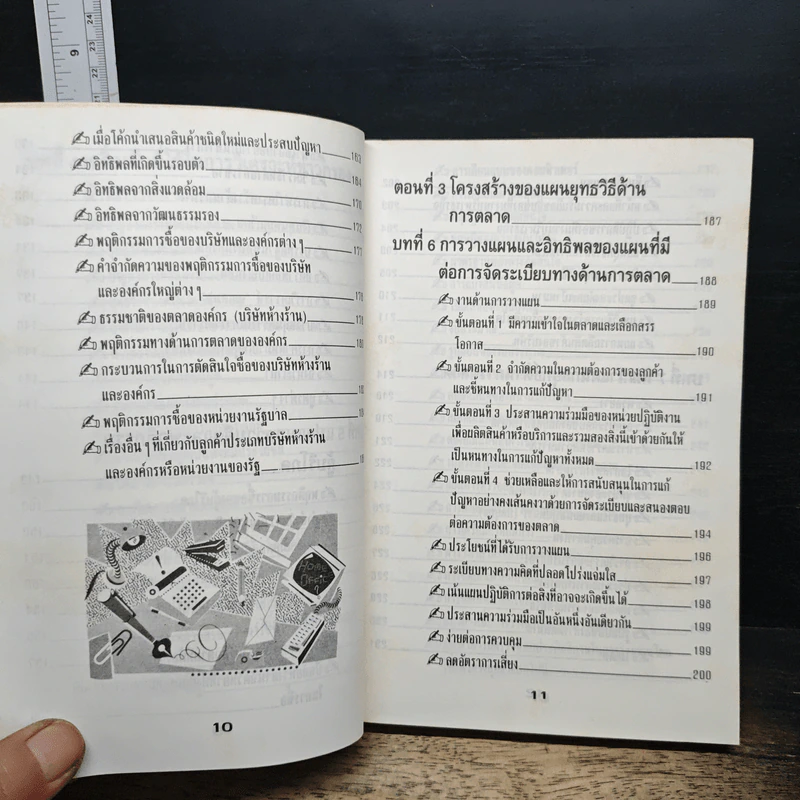 เมื่อโค้กนำเสนอสินค้าชนิดใหม่และประสบปัญหา 163
อิทธิพลที่เกิดขึ้นรอบตัว 164
อิทธิพลจากสิ่งแวดล้อม 170
อิทธิพลจากวัฒนธรรมรอง 172
พฤติกรรมการซื้อของบริษัทและองค์กรต่าง ๆ
คำจำกัดความของพฤติกรรมการซื้อของบริษัท
และองค์กรใหญ่ต่าง ๆ
ธรรมชาติของตลาดองค์กร (บริษัทห้างร้าน)
พฤติกรรมทางด้านการตลาดขององค์กร
กระบวนการในการตัดสินใจซื้อของบริษัทห้างร้าน
และองค์กร
พฤติกรรมการซื้อของหน่วยงานรัฐบาล
เรื่องอื่น ๆ ที่เกี่ยวกับลูกค้าประเภทบริษัทห้างร้าน
และองค์กรหรือหน่วยงานของรัฐ
HOME
OFFICE
10
ตอนที่ 3 โครงสร้างของแผนยุทธวิธีด้าน
การตลาด 187
บทที่ 6 การวางแผนและอิทธิพลของแผนที่มี
ต่อการจัดระเบียบทางด้านการตลาด 188
งานด้านการวางแผน 189
ขั้นตอนที่ 1 มีความเข้าใจในตลาดและเลือกสรร
โอกาส 190
ขั้นตอนที่ 2 จำกัดความในความต้องการของลูกค้า
และชี้หนทางในการแก้ปัญหา 191
ขั้นตอนที่ 3 ประสานความร่วมมือของหน่วยปฏิบัติงาน
เพื่อผลิตสินค้าหรือบริการและรวมสองสิ่งนี้เข้าด้วยกันให้
เป็นหนทางในการแก้ปัญหาทั้งหมด 192
ขั้นตอนที่ 4 ช่วยเหลือและให้การสนับสนุนในการแก้
ปัญหาอย่างคงเส้นคงวาด้วยการจัดระเบียบและสนองตอบ
ต่อความต้องการของตลาด 194
ประโยชน์ที่ได้รับการวางแผน 196
ระเบียบทางความคิดที่ปลอดโปร่งแจ่มใส 197
เน้นแผนปฏิบัติการต่อสิ่งที่อาจจะเกิดขึ้นได้ 198
ประสานความร่วมมือเป็นอันหนึ่งอันเดียวกัน 199
ง่ายต่อการควบคุม 199
ลดอัตราการเสี่ยง 200
11